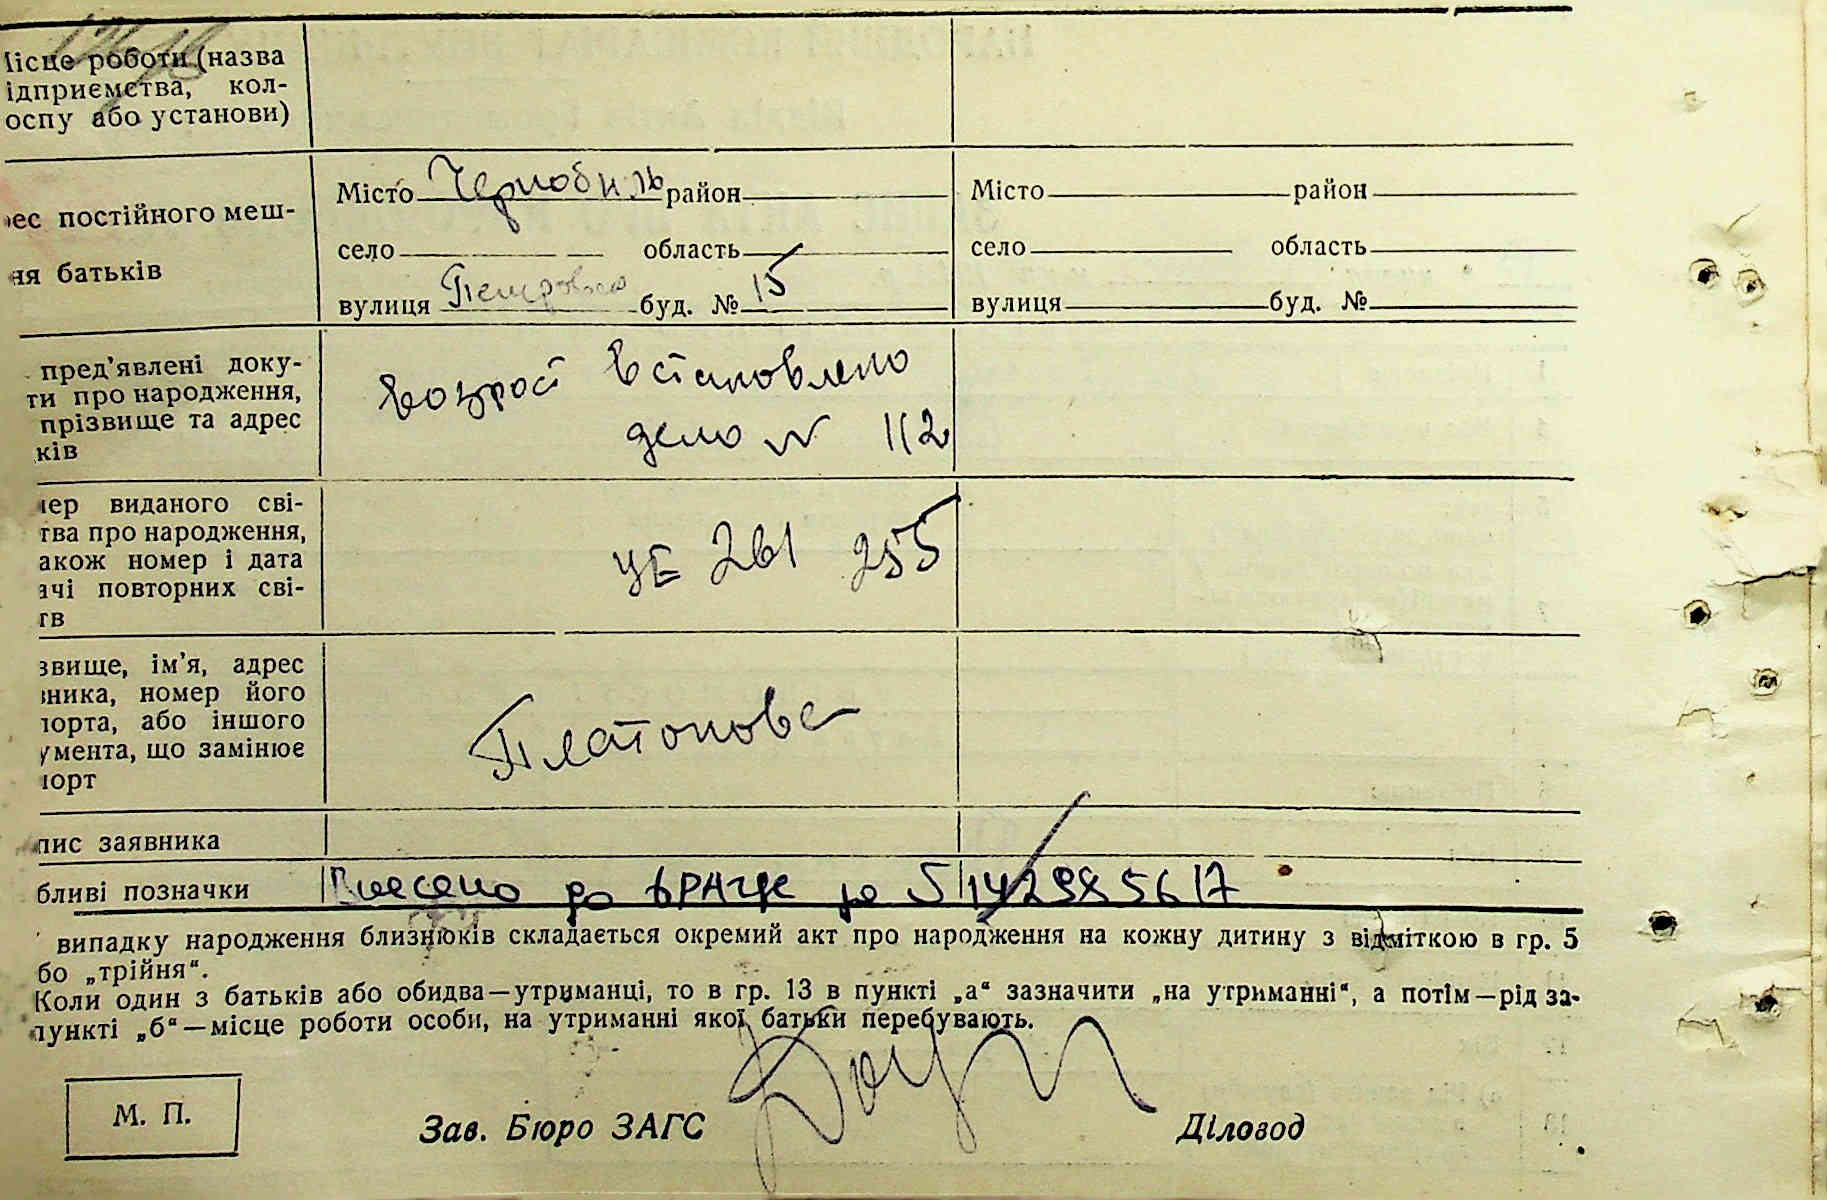 Місце роботи (назва
ідприємства, кол-
оспу або установи)
Місто Чернобиль район
Місто район
рес постійного меш-
село область
село область
ня батьків
вулиця буд. № 15
вулиця буд. №
пред'явлені доку-
ти про народження,
прізвище та адрес
ків
возрост встановлено
дело N 112
мер виданого сві-
тва про народження,
акож номер і дата
ачі повторних сві-
тв
УЕ 261 255
звище, ім'я, адрес
вника, номер його
порта, або іншого
умента, що замінює
порт
Платонова
пис заявника
бливі позначки
Внесено до
випадку народження близнюків складається окремий акт про народження на кожну дитину з відміткою в гр. 5
бо „трійня“.
Коли один з батьків або обидва—утриманці, то в гр. 13 в пункті „а“ зазначити „на утриманні“, а потім—рід за-
пункті „б“—місце роботи особи, на утриманні якої батьки перебувають.
М. П.
Зав. Бюро ЗАГС
Діловод